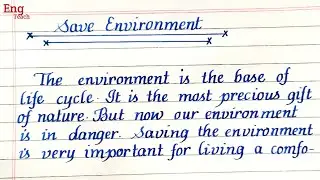 Eng
Teach
Save Environment
The environment is the base of
life cycle. It is the most precious gift
of nature. But now our environment
is in danger. Saving the environment
is very important for living a comfo-